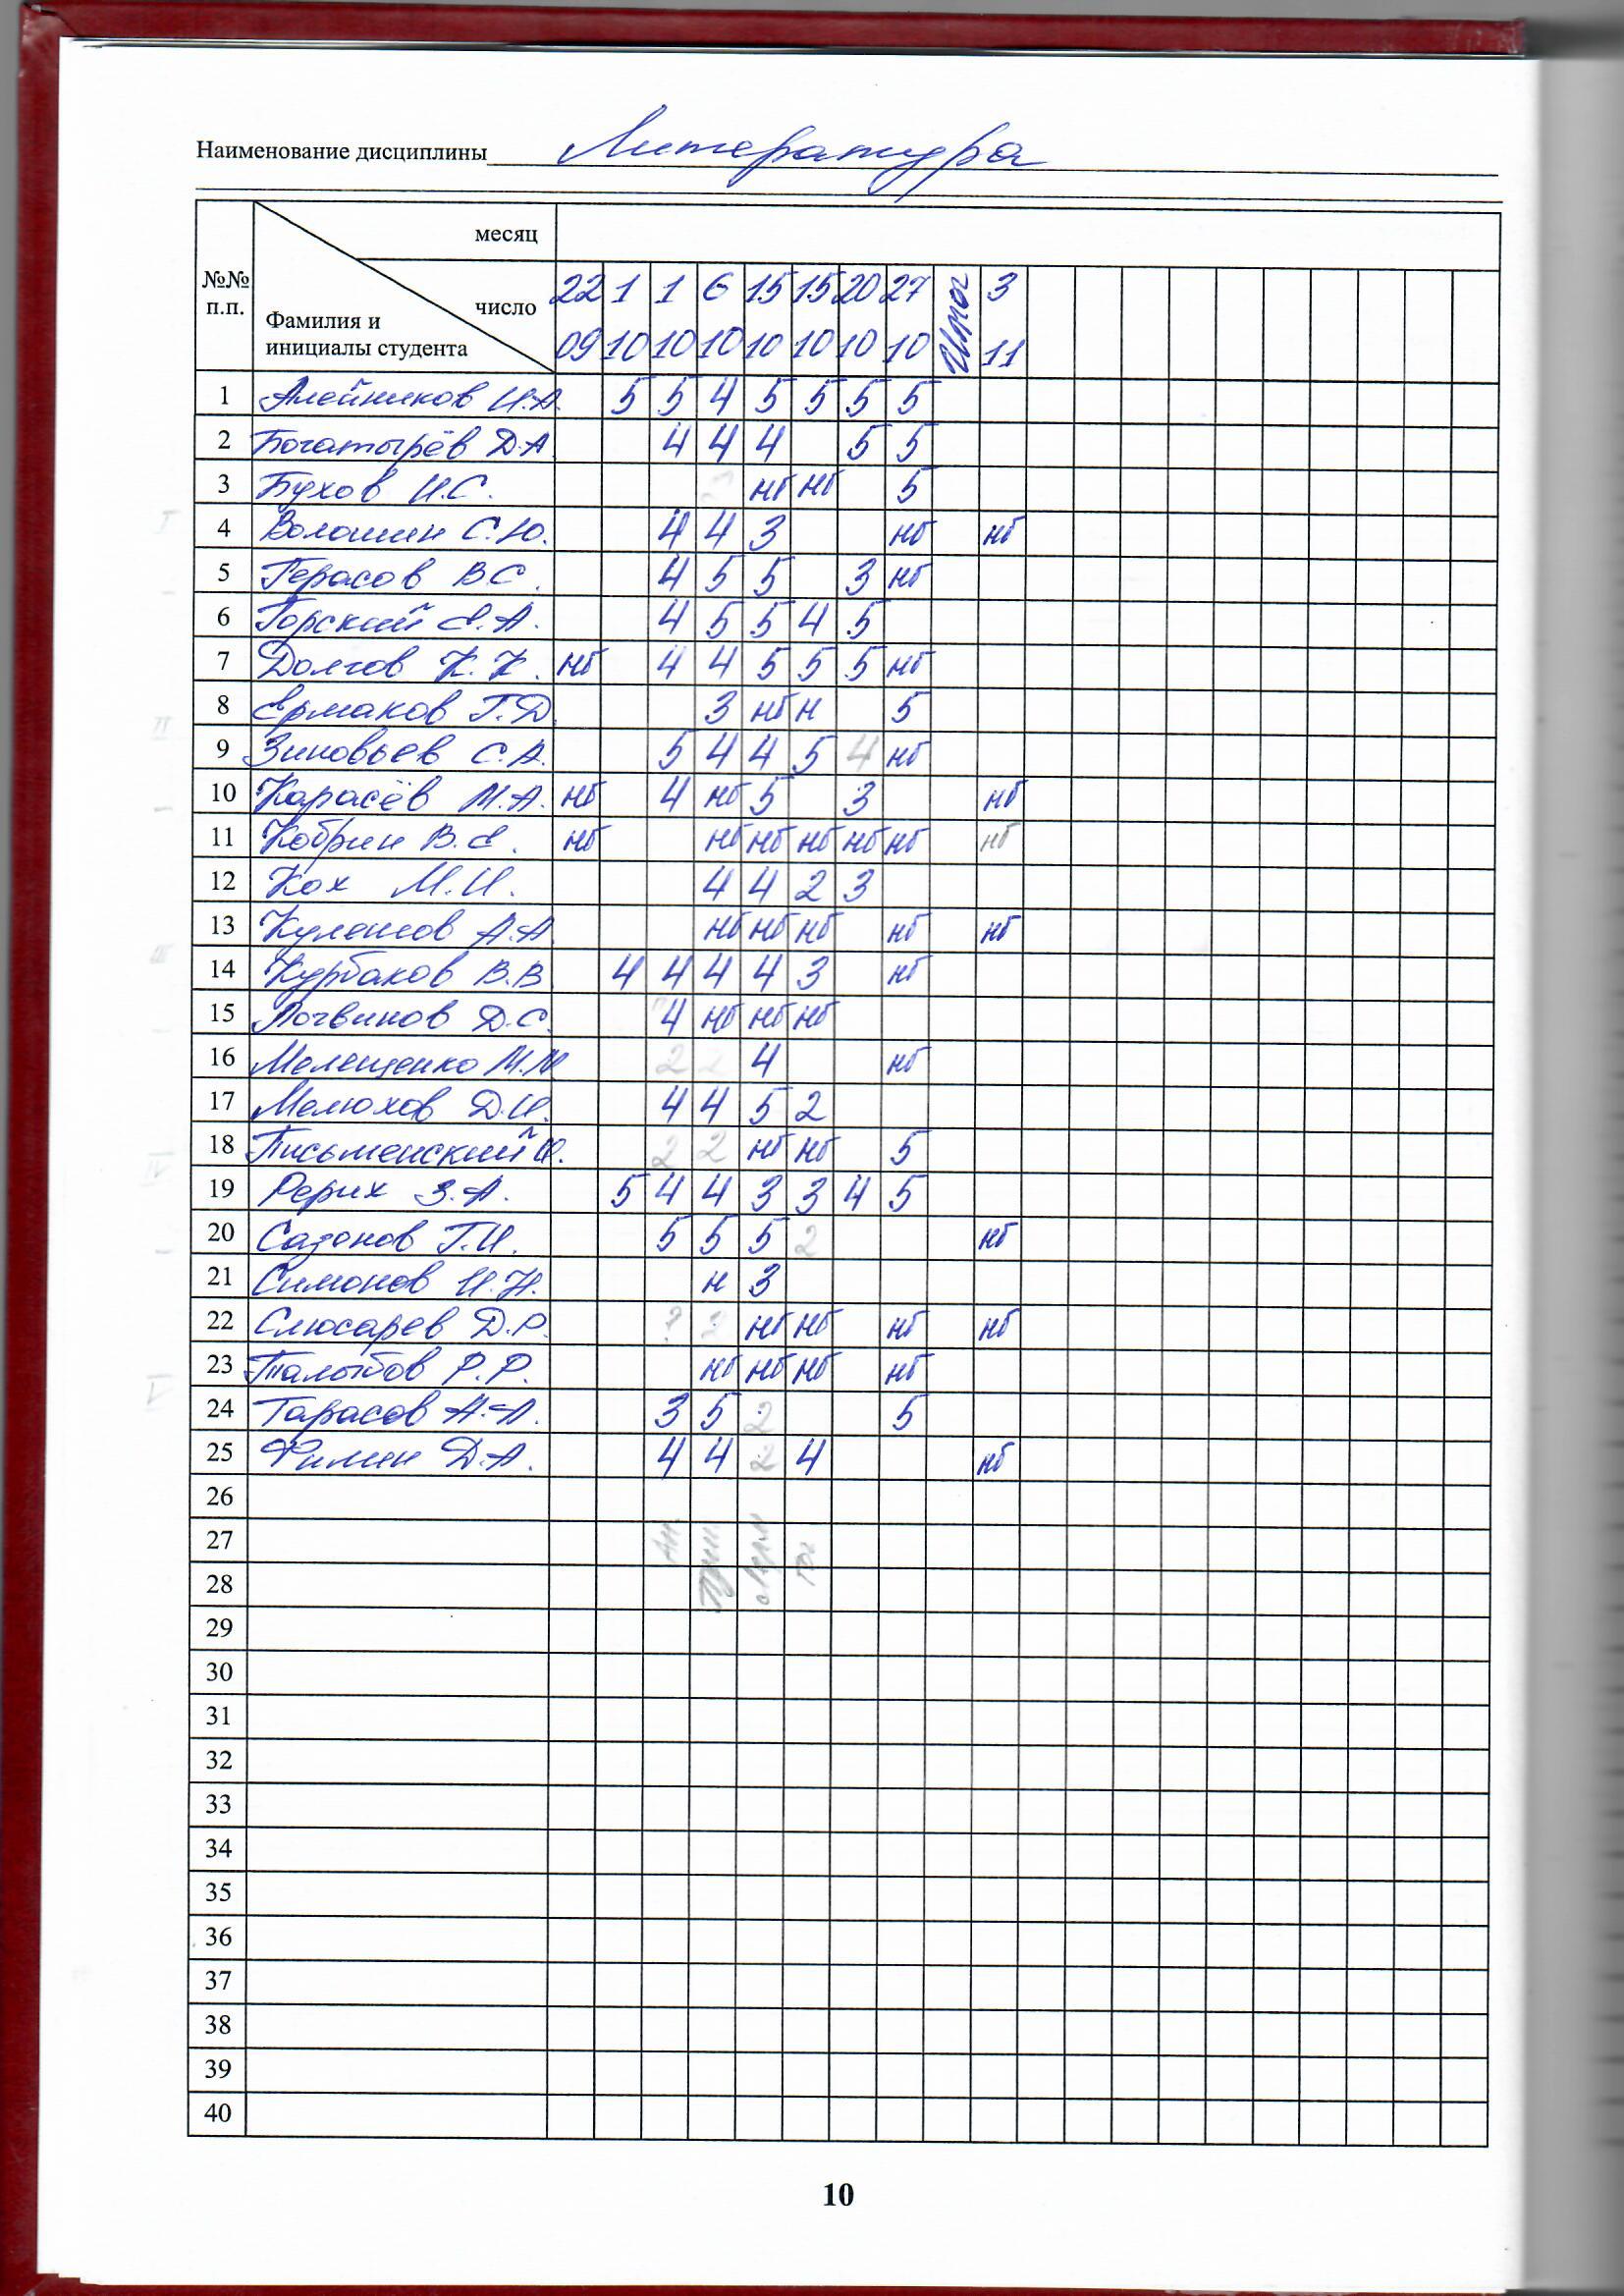 Наименование дисциплины Литература
месяц
№№ п.п.
число
Фамилия и инициалы студента
22 1 1 6 15 15 20 27 Итог 3
09 10 10 10 10 10 10 10 11
1 Алейников И.А. 5 5 4 5 5 5 5
2 Богатырёв Д.А 4 4 4 5 5
3 Бухов И.С. нб нб 5
4 Волошин С.Ю. 4 4 3 нб нб
5 Герасов В.С. 4 5 5 3 нб
6 Горский Е.А. 4 5 5 4 5
7 Долгов К.К. нб 4 4 5 5 5 нб
8 Ермаков Г.Д. 3 нб н 5
9 Зиновьев С.А. 5 4 4 5 4 нб
10 Карасёв М.А. нб 4 нб 5 3 нб
11 Кобрин В.Е. нб нб нб нб нб нб нб
12 Кох М.И. 4 4 2 3
13 Кулешов А.А. нб нб нб нб нб
14 Курбаков В.В 4 4 4 4 3 нб
15 Логвинов Д.С. 4 нб нб нб
16 Мелещенко М.М 2 2 4 нб
17 Мелюхов Д.И. 4 4 5 2
18 Письменский И. 2 2 нб нб 5
19 Рерих З.А. 5 4 4 3 3 4 5
20 Сазонов Г.И. 5 5 5 2 нб
21 Симонов И.Н. н 3
22 Слюсарев Д.Р. 2 нб нб нб нб
23 Талыбов Р.Р. нб нб нб нб
24 Тарасов А.А. 3 5 2 5
25 Филин Д.А. 4 4 2 4 нб
26
27
28
29
30
31
32
33
34
35
36
37
38
39
40
10